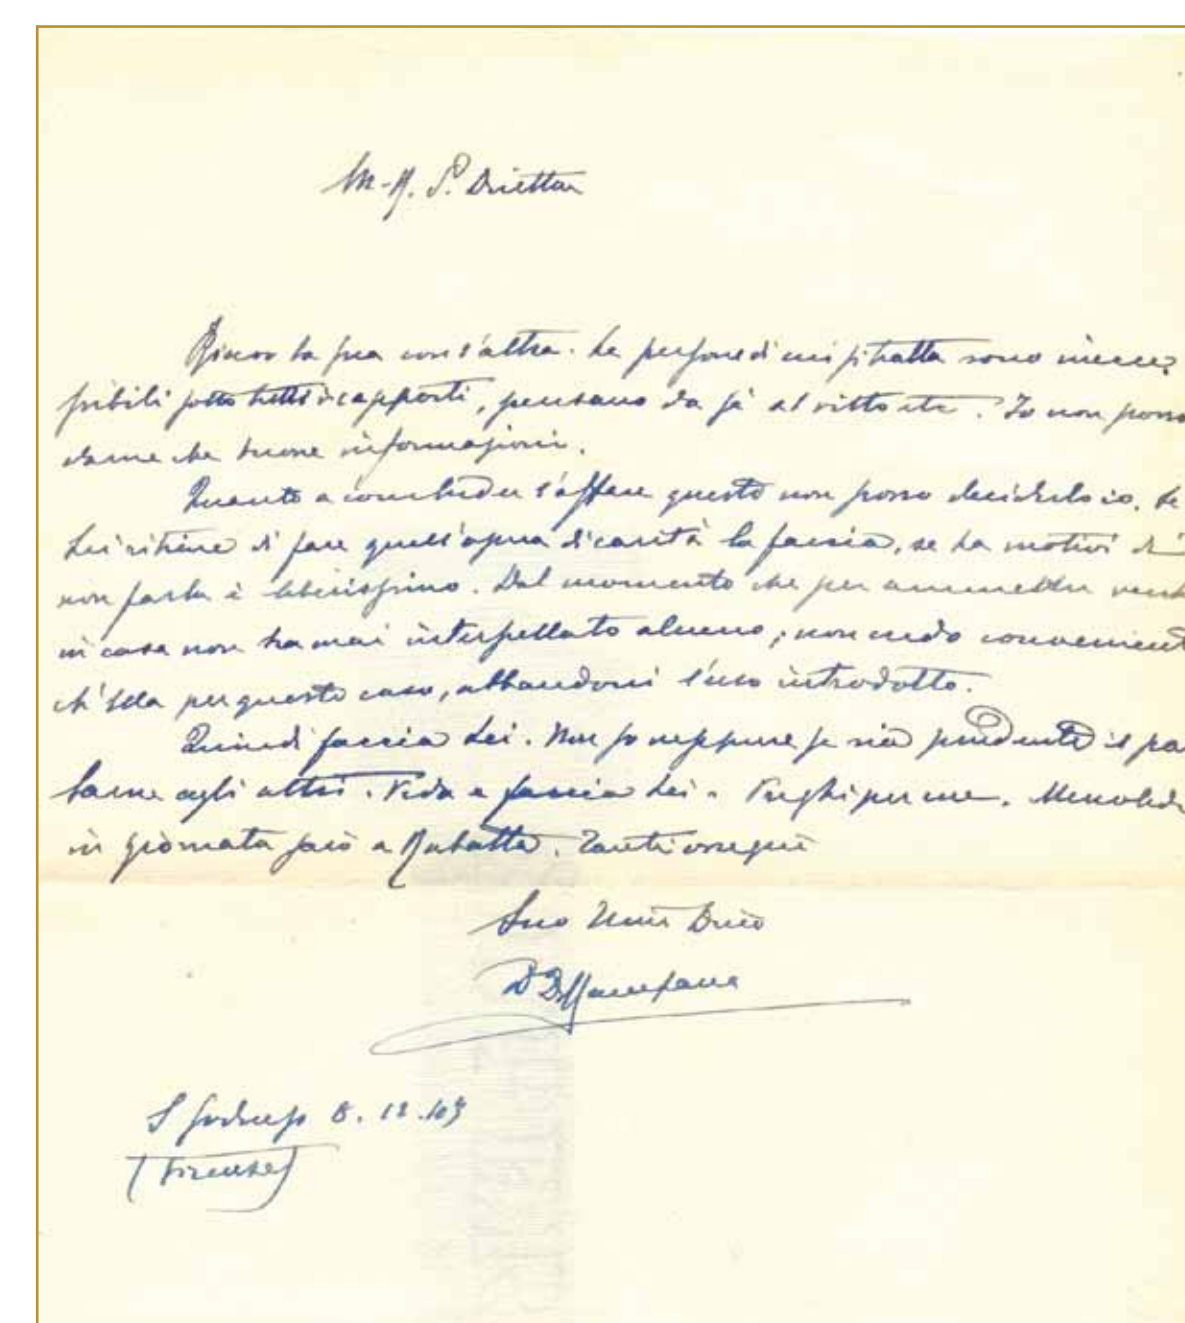 M. R. S. Direttor
Ricevo la sua con l'altra. Le persone di cui si tratta sono inecce-
pibili sotto tutti i rapporti, pensano da sé al vitto etc. Io non posso
darne che buone informazioni.
Quanto a concluder l'affare questo non posso deciderlo io. Se
Lei ritiene di fare quell'opera di carità la faccia, se ha motivi di
non farla è liberissimo. Dal momento che per ammetter
in casa non ha mai interpellato alcuno, non credo convenient
ch'Ella per questo caso, abbandoni l'uso introdotto.
Quindi faccia Lei. Non so neppure se sia prudente il par
larne agli altri. Veda e faccia Lei. Preghi per me. Mercoledì
in giornata sarò a Rabatta. Tanti ossequi
Suo
D D
S 8. 12.
(Firenze)